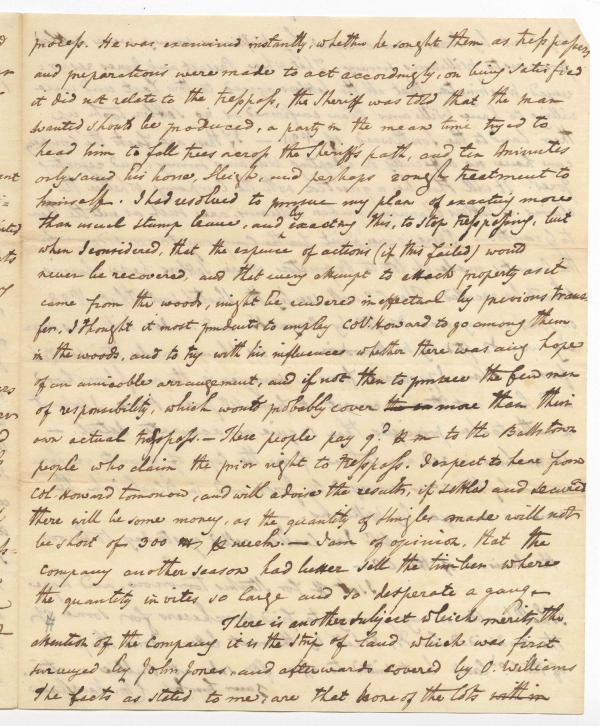 process. He was examined instantly, whether he sought them as tresspassers
and preparations were made to act accordingly, on being satisfied
it did not relate to the tresspass, the Sheriff was told that the man
wanted should be produced, a party in the mean time tryed to
head him to fall trees across the Sheriff's path, and ten minutes
only saved his horse, Sleigh, and perhaps rough treatment to
himself. I had resolved to pursue my plan of exacting more
than usual stump leave, and by exacting this, to stop tresspassing, but
when I considered, that the expence of actions (if this failed) would
never be recovered, and that every attempt to attach property as it
came from the woods, might be rendered ineffectual by previous trans-
fer, I thought it most prudent to employ Col. Howard to go among them
in the woods, and to try with his influence whether there was any hope
of an amicable arrangement, and if not then to pursue the few men
of responsibility, which would probably cover more than their
own actual tresspass. — These people pay to the Ballstown
people who claim the prior right to tresspass. I expect to hear from
Col. Howard tomorrow, and will advise the results, if settled and secured
there will be some money, as the quantity of shingles made will not
be short of 300 — I am of opinion, that the
company another season had better sell the timber where
the quantity invites so large and so desperate a gang —
There is another subject which merits the
attention of the company it is the strip of land which was first
surveyed by John Jones, and afterwards covered by O. Williams
The facts as stated to me, are that none of the lots within